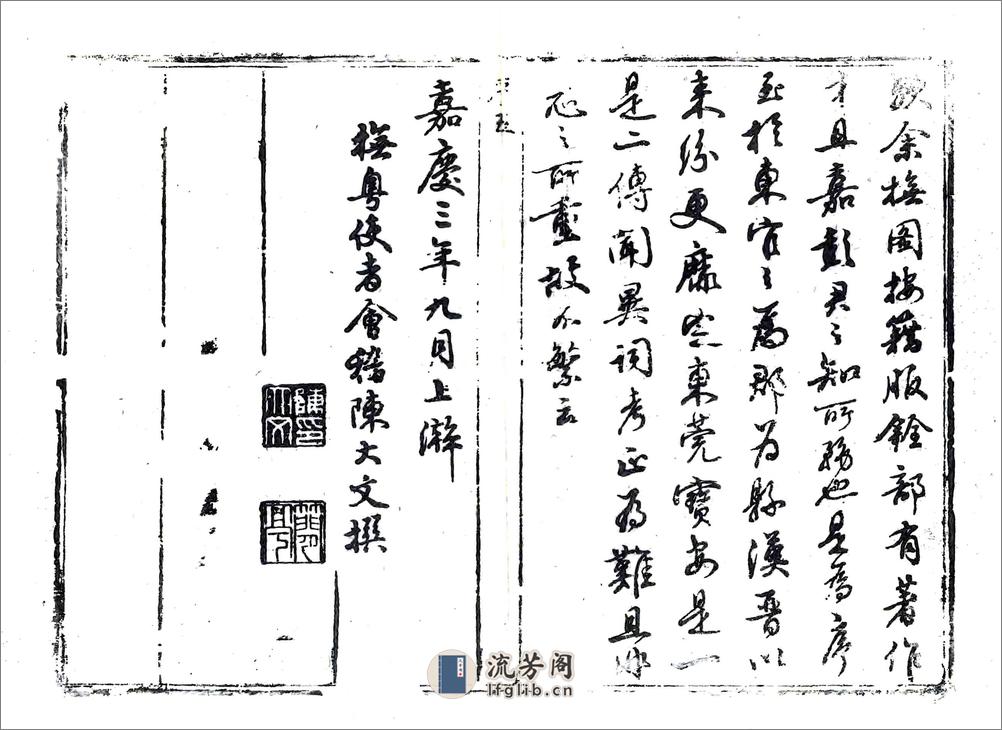 歟余撫圖按籍服銓部有著作
才且嘉彭君之知所務也是為序
至於東官之為郡為縣漢晉以
來紛更靡定東莞寶安是一
是二傳聞異詞考正為難且非
志之所重故不繁云
嘉慶三年九月上澣
撫粵使者會稽陳大文撰
流芳阁
lfglib.cn